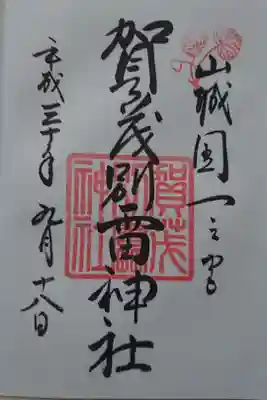 山城国一之宮
賀茂別雷神社
賀茂別雷神社
平成三十年九月十八日